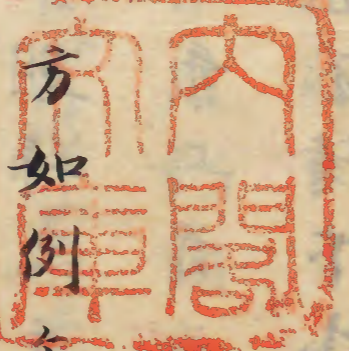 内閣
文庫
方如例